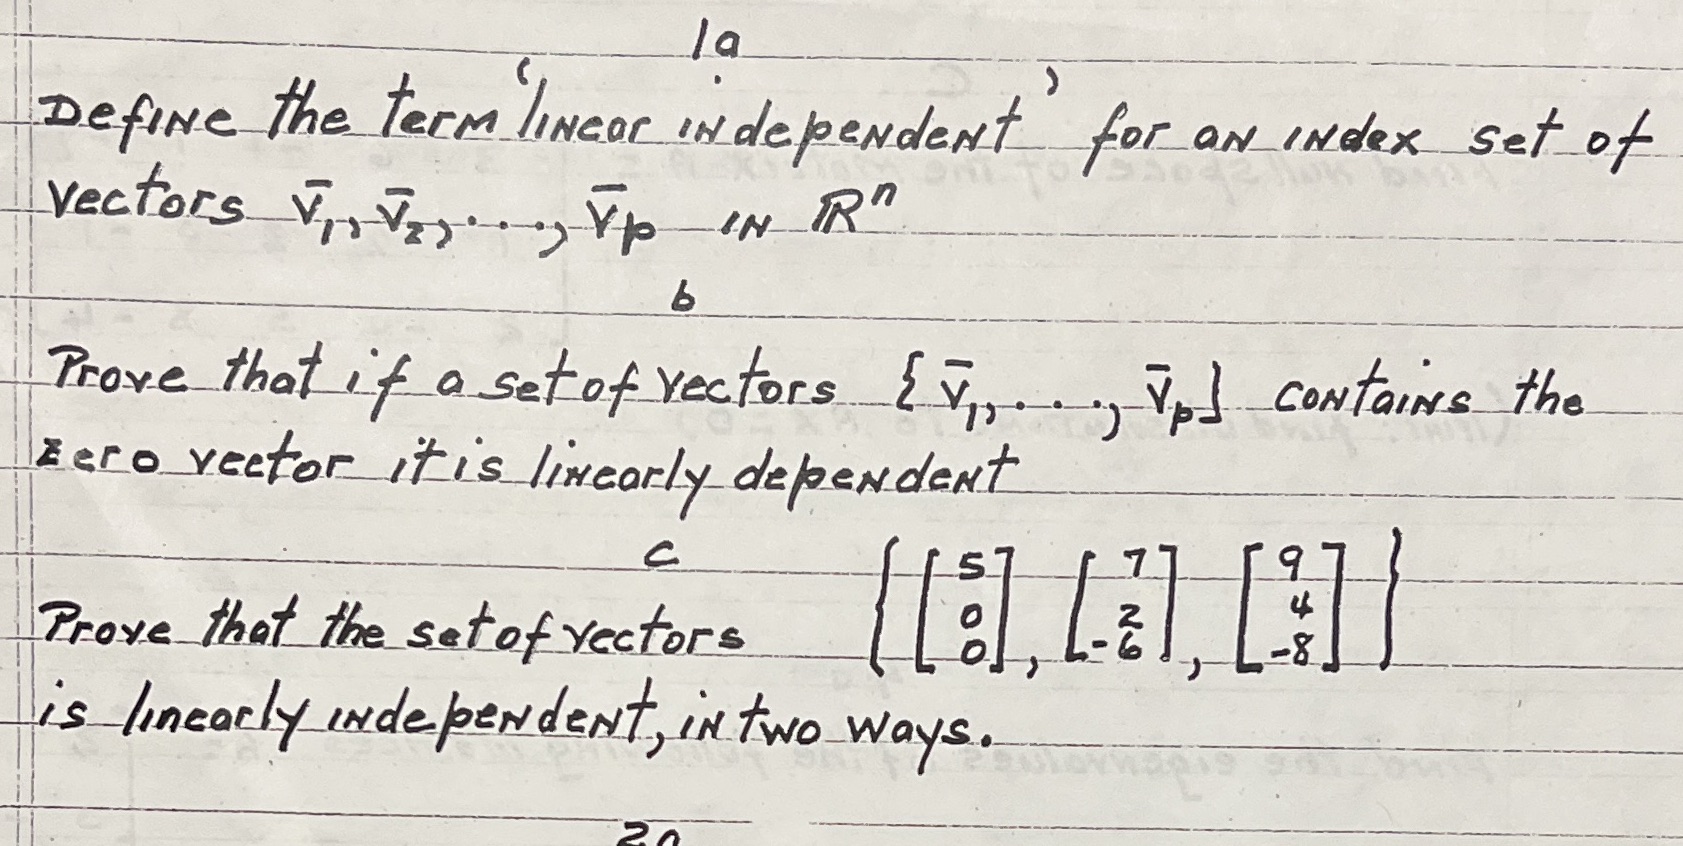 1a
Define the term 'linear independent' for an index set of
vectors v̄₁, v̄₂, ...., v̄p in ℝⁿ
b
Prove that if a set of vectors {v̄₁, ...., v̄p} contains the
zero vector it is linearly dependent
c
Prove that the set of vectors { [5 0 0], [7 2 -6], [9 4 -8] }
is linearly independent, in two ways.
2a